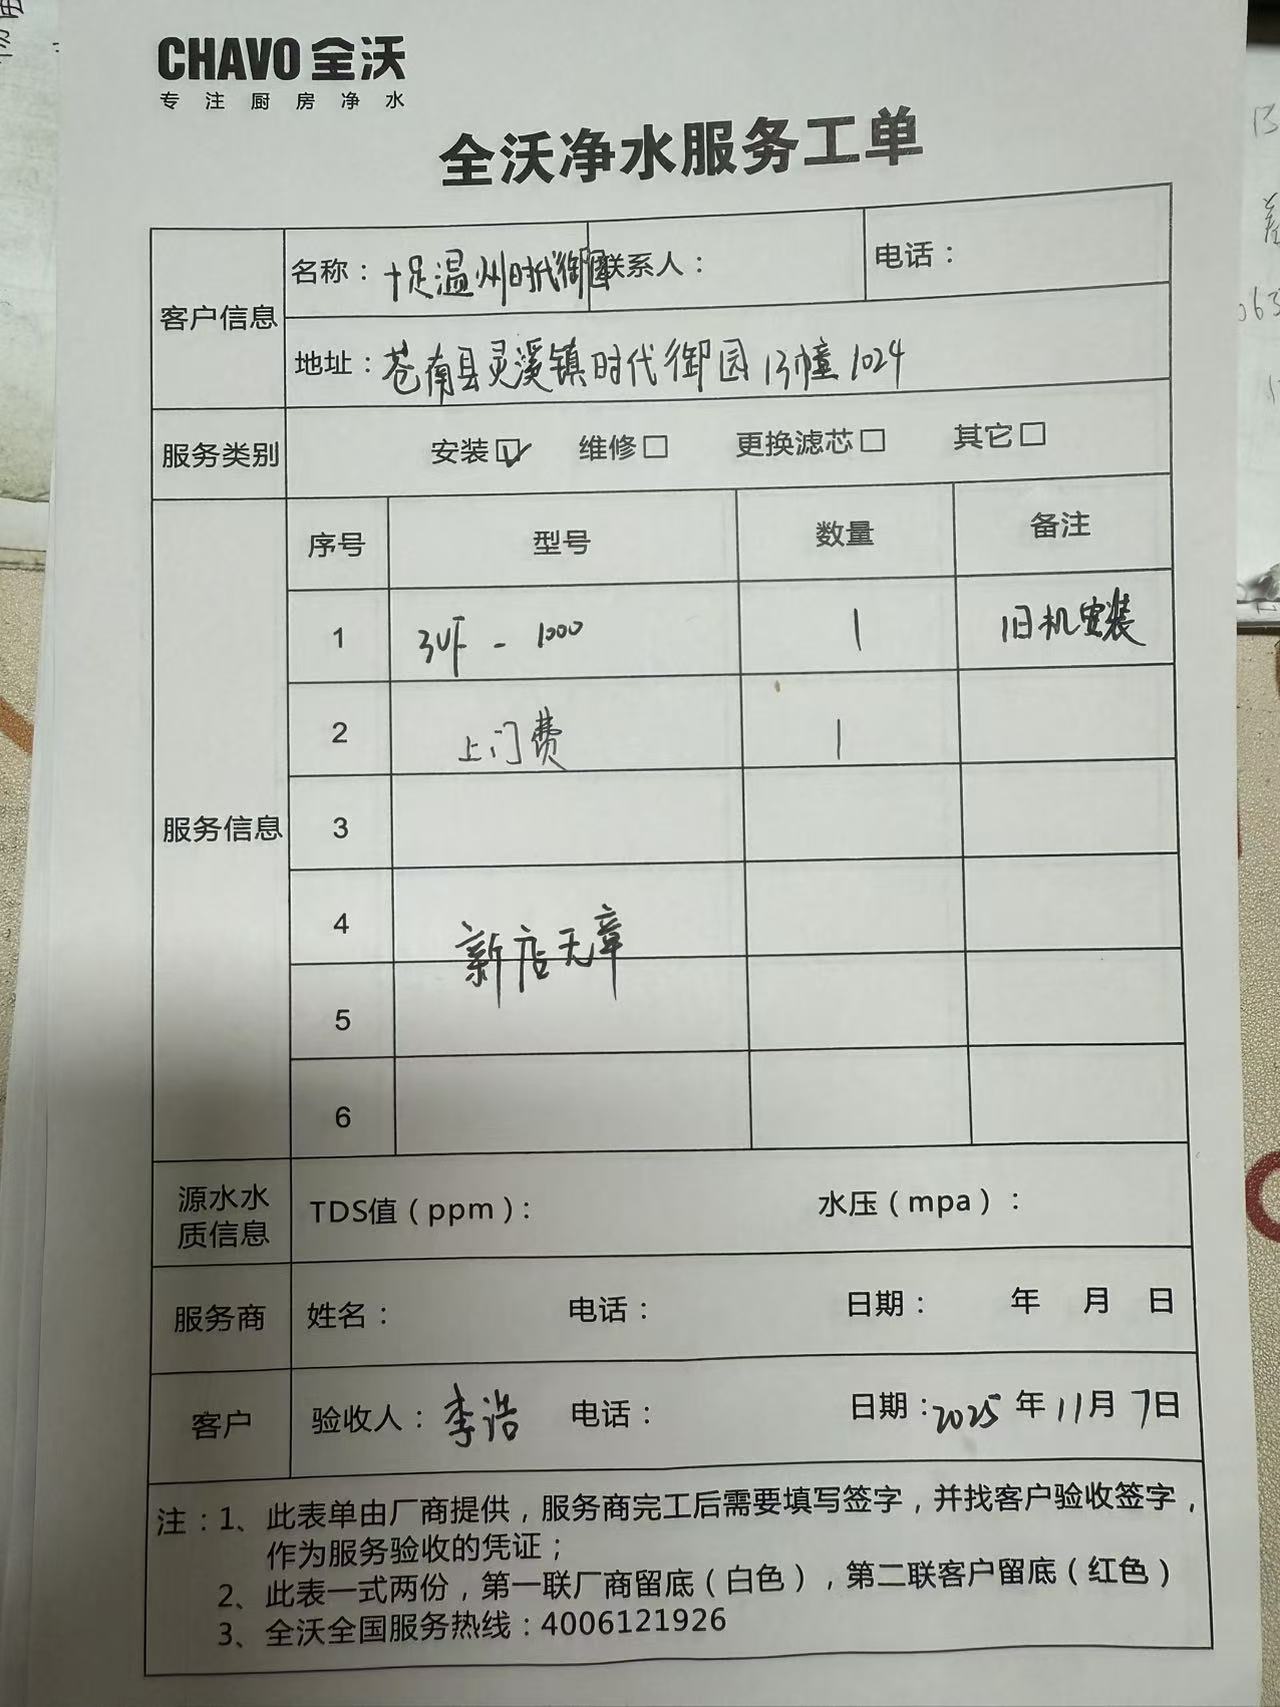 CHAVO 全沃
专注厨房净水
全沃净水服务工单
客户信息
名称：十足温州时代御园 联系人： 电话：
地址：苍南县灵溪镇时代御园13幢1024
服务类别 安装☑ 维修□ 更换滤芯□ 其它□
服务信息
序号 型号 数量 备注
1 3UF-1000 1 旧机安装
2 上门费 1
3
4
新店无章
5
6
源水水质信息 TDS值（ppm）： 水压（mpa）：
服务商 姓名： 电话： 日期： 年 月 日
客户 验收人：李浩 电话： 日期：2025年11月7日
注：1、此表单由厂商提供，服务商完工后需要填写签字，并找客户验收签字，
作为服务验收的凭证；
2、此表一式两份，第一联厂商留底（白色），第二联客户留底（红色）
3、全沃全国服务热线：4006121926